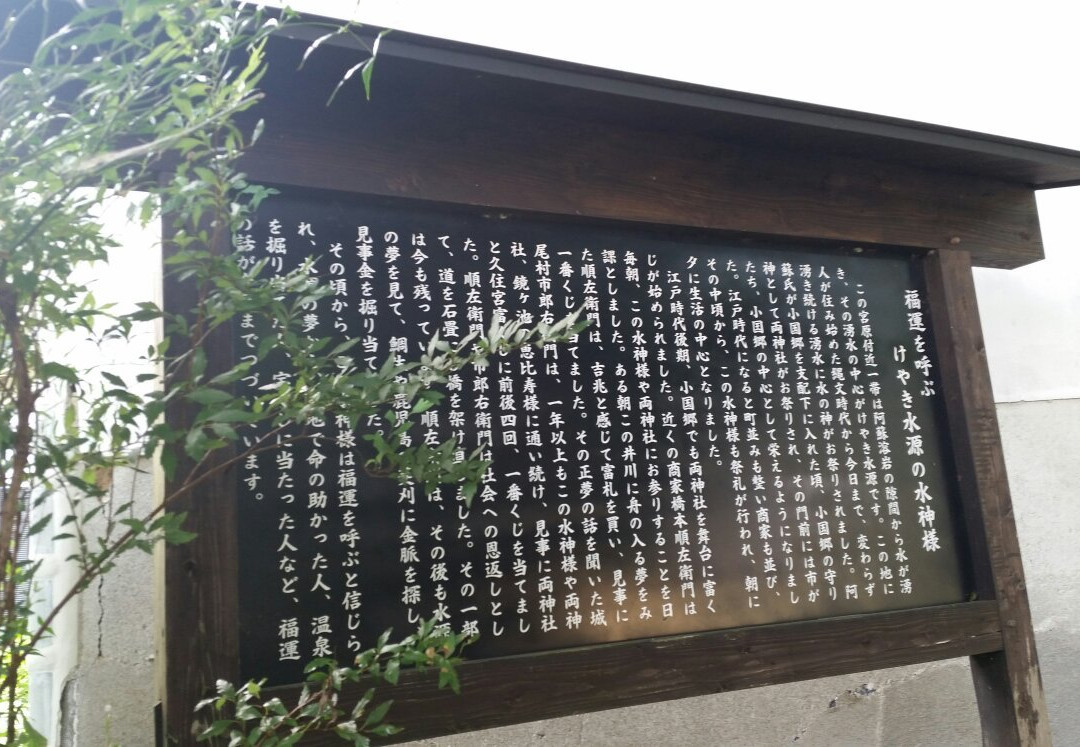 福運を呼ぶ
けやき水源の水神様
この宮原付近一帯は阿蘇溶岩の隙間から水が湧
き、その湧水の中心がけやき水源です。この地に
人が住み始めた縄文時代から今日まで、変わらず
湧き続ける湧水に水の神がお祭りされました。阿
蘇氏が小国郷を支配下に入れた頃、小国郷の守り
神として両神社がお祭りされ、その門前には市が
たち、小国郷の中心として栄えるようになりまし
た。江戸時代になると町並みも整い商家も並び、
その中頃から、この水神様も祭礼が行われ、朝に
夕に生活の中心となりました。
江戸時代後期、小国郷でも両神社を舞台に富く
じが始められました。近くの商家橋本順左衛門は
毎朝、この水神様や両神社にお参りすることを日
課としました。ある朝この井川に舟の入る夢をみ
た順左衛門は、吉兆と感じて富札を買い、見事に
一番くじを当てました。その正夢の話を聞いた城
尾村市郎右衛門は、一年以上もこの水神様や両神
社、鏡ヶ池の恵比寿様に通い続け、見事に両神社
と久住宮富くじに前後四回、一番くじを当てまし
た。順左衛門 市郎右衛門は社会への恩返しとし
て、道を石畳 橋を架け ました。その一部
は今も残ってい 順左 は、その後も水源
の夢を見て、鯛生や鹿児島 刈に金脈を探し
見事金を掘り当て た。
その頃から、 神様は福運を呼ぶと信じら
れ、水 の夢 地で命の助かった人、温泉
を掘り た に当たった人など、福運
の話が までつづ います。